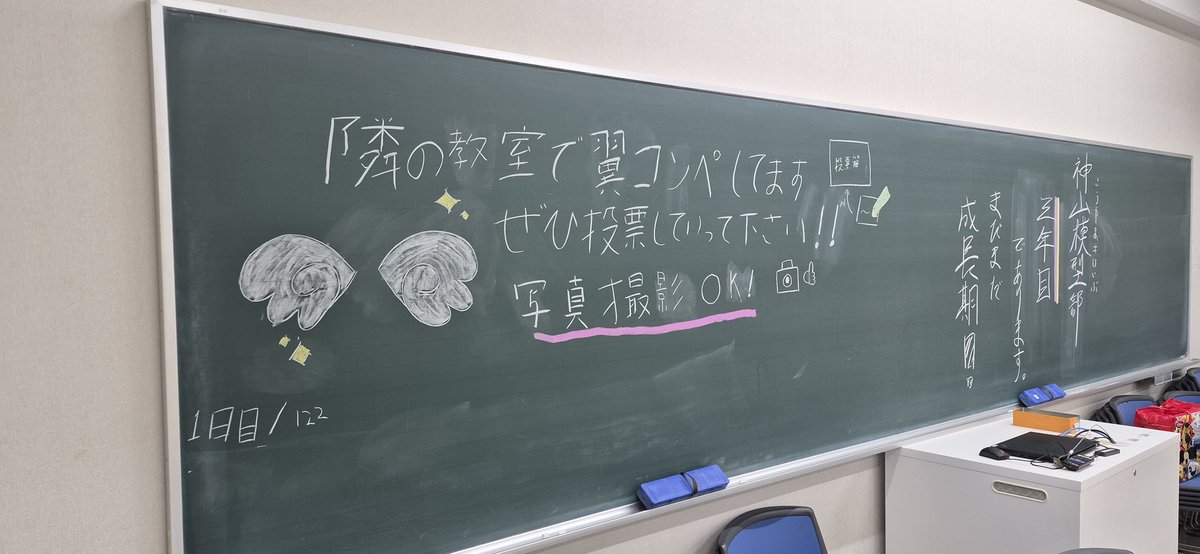 隣の教室で翼コンペしてます
投票箱
ぜひ投票していって下さい!!
写真撮影OK!
1日目/122
神山模型部
年目
であります。
まだまだ
成長期